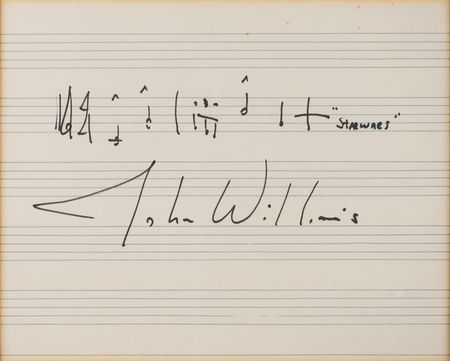 "STARWARS"
John Williams